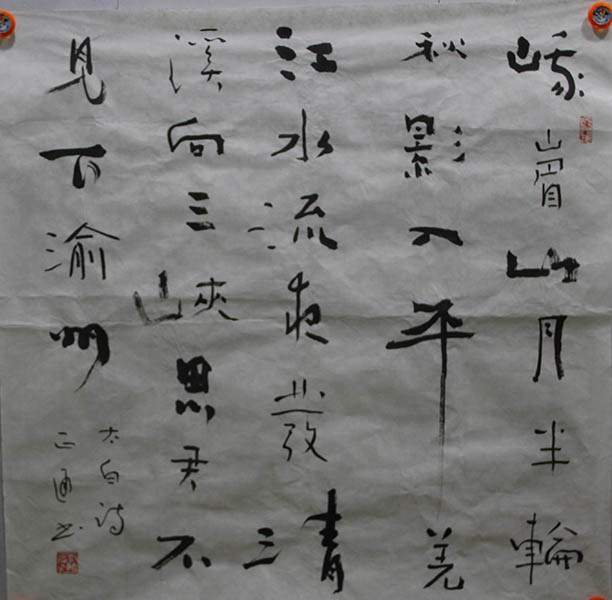 峨嵋山月半輪
秋影入平羌
江水流夜發清
溪向三峽思君不
見下渝州
太白詩
正通书